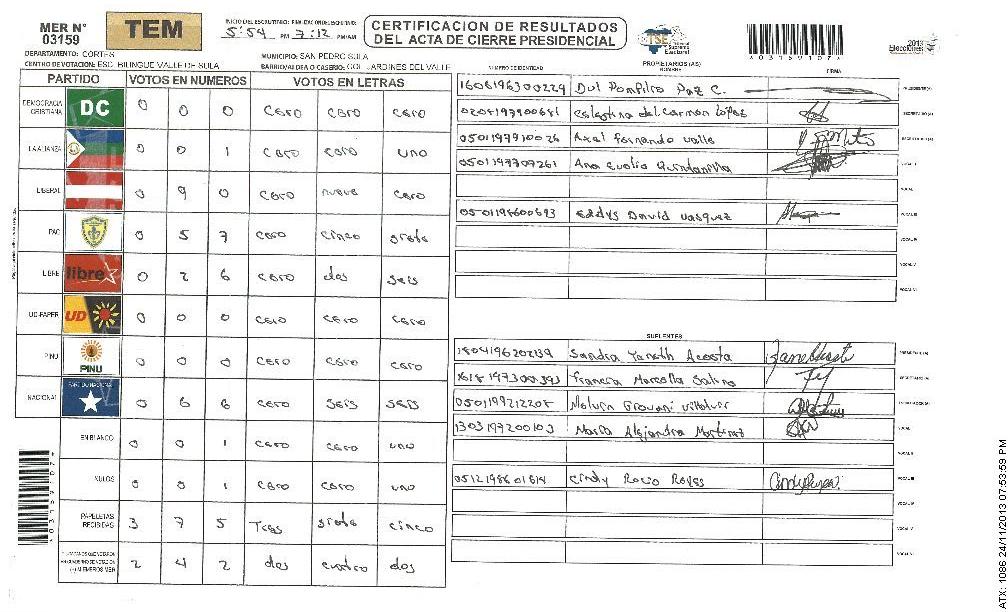 MER N° 03159
TEM
INICIO DEL ESCRUTINIO: FINALIZACION DEL ESCRUTINIO:
5:54 PM 7:12 PM/AM
CERTIFICACION DE RESULTADOS
DEL ACTA DE CIERRE PRESIDENCIAL
TSE Tribunal Supremo Electoral
2013 Elecciones
*03159107*
DEPARTAMENTO: CORTES
MUNICIPIO: SAN PEDRO SULA
CENTRO DE VOTACION: ESC. BILINGUE VALLE DE SULA
BARRIO/ALDEA O CASERIO: COL. JARDINES DEL VALLE
PARTIDO VOTOS EN NUMEROS VOTOS EN LETRAS
DEMOCRACIA CRISTIANA DC 0 0 0 cero cero cero
LA ALIANZA 0 0 1 cero cero uno
LIBERAL 0 9 0 cero nueve cero
PAC 0 5 7 cero cinco siete
LIBRE libre 0 2 6 cero dos seis
UD-FAPER UD 0 0 0 cero cero cero
PINU PINU 0 0 0 cero cero cero
NACIONAL PARTIDO NACIONAL 0 6 6 cero seis seis
EN BLANCO 0 0 1 cero cero uno
NULOS 0 0 1 cero cero uno
PAPELETAS RECIBIDAS 3 7 5 Tres siete cinco
CIUDADANOS QUE VOTARON EN CUADERNO DE VOTACION (+) MIEMBROS MER 2 4 2 dos cuatro dos
*03159107*
NUMERO DE IDENTIDAD PROPIETARIOS (AS) NOMBRE FIRMA
1606196300229 Paz C. PRESIDENTE(A)
Celestina del Carmen López SECRETARIO(A)
0501197910026 Axel Fernando Valle ESCRUTADOR(A)
0501197707261 Ana VOCAL I
VOCAL II
0501198600693 Eddys David Vasquez VOCAL III
VOCAL IV
VOCAL V
VOCAL VI
SUPLENTES
1804196202139 Sandra Yaneth Acosta PRESIDENTE(A)
Marcella SECRETARIO(A)
0501199212207 Giovani ESCRUTADOR(A)
1303197200103 Maria Alejandra Martinez VOCAL I
VOCAL II
Cindy Rocio Reyes VOCAL III
VOCAL IV
VOCAL V
VOCAL VI
ATX: 1086 24/11/2013 07:53:59 PM